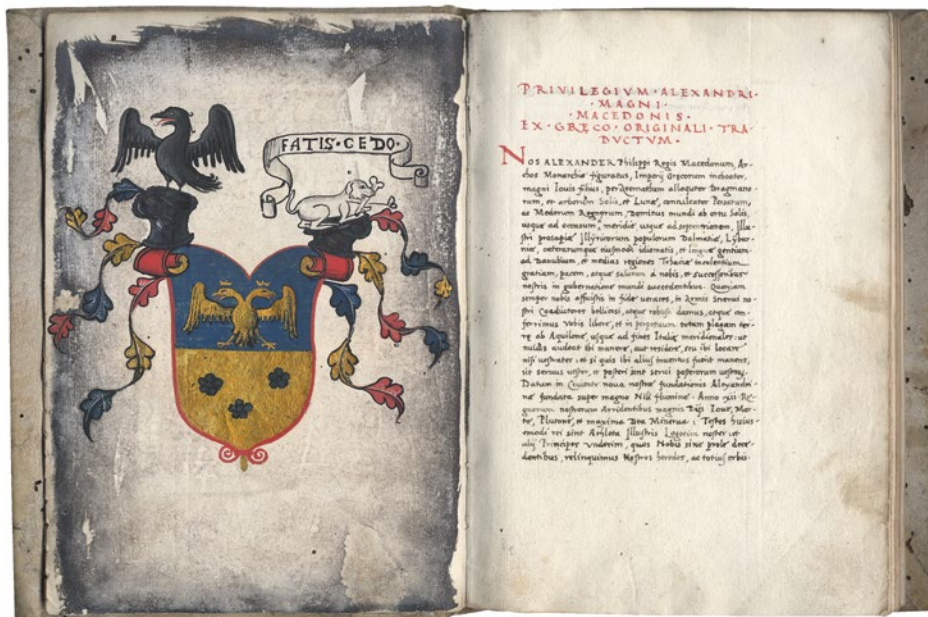 FATIS·CEDO·
PRIVILEGIVM·ALEXANDRI·
·MAGNI·
·MACEDONIS·
EX·GRĘCO·ORIGINALI·TRA-
DVCTVM·
NOS ALEXANDER Philippi Regis Macedonum, Ar-
chos Monarchię figuratus, Imperij Gręcorum inchoator,
magni Iouis filius, per allocutor Bragmano-
rum, et arborum Solis, et Lunę, conculcator Persarum,
ac Medorum Regnorum, Dominus mundi ab ortu Solis,
usque ad occasum, a meridie usque ad septentrionem, Illu-
stri prosapię Illyricorum populorum Dalmatię, Lybur-
nię, cęterarumque eiusmodi idiomatis, et linguę gentium
ad Danubium, et medias regiones Trhacię incolentium
gratiam, pacem, atque salutem a nobis, et successoribus
nostris in gubernatione mundi succedentibus. Quoniam
semper nobis affuistis in fide ueraces, in Armis strenui no-
stri Coadiutores bellicosi, atque robusti damus, atque con-
ferrimus Vobis liberè, et in perpetuum totam plagam ter-
rę ab Aquilone, usque ad fines Italię meridionales: ut
nullus audeat ibi manere, aut residere, seu ibi locare
nisi uestrates: et si quis ibi alius inuentus fuerit manens,
sit seruus uester, et posteri sint serui posterorum uestrorum.
Datum in Ciuitate noua nostrę fundationis Alexandri-
nę fundata super magno Nili flumine. Anno xij Re-
gnorum nostrorum Arridentibus magnis Dijs Ioue, Mar-
te, Plutone, et maxima Dea Minerua: Testes huius-
emodi rei sint Athleta Illustris noster: et
alij Principes Vndecim, quos Nobis sine prole dece-
dentibus, relinquimus Nostros heredes, ac totius orbis.